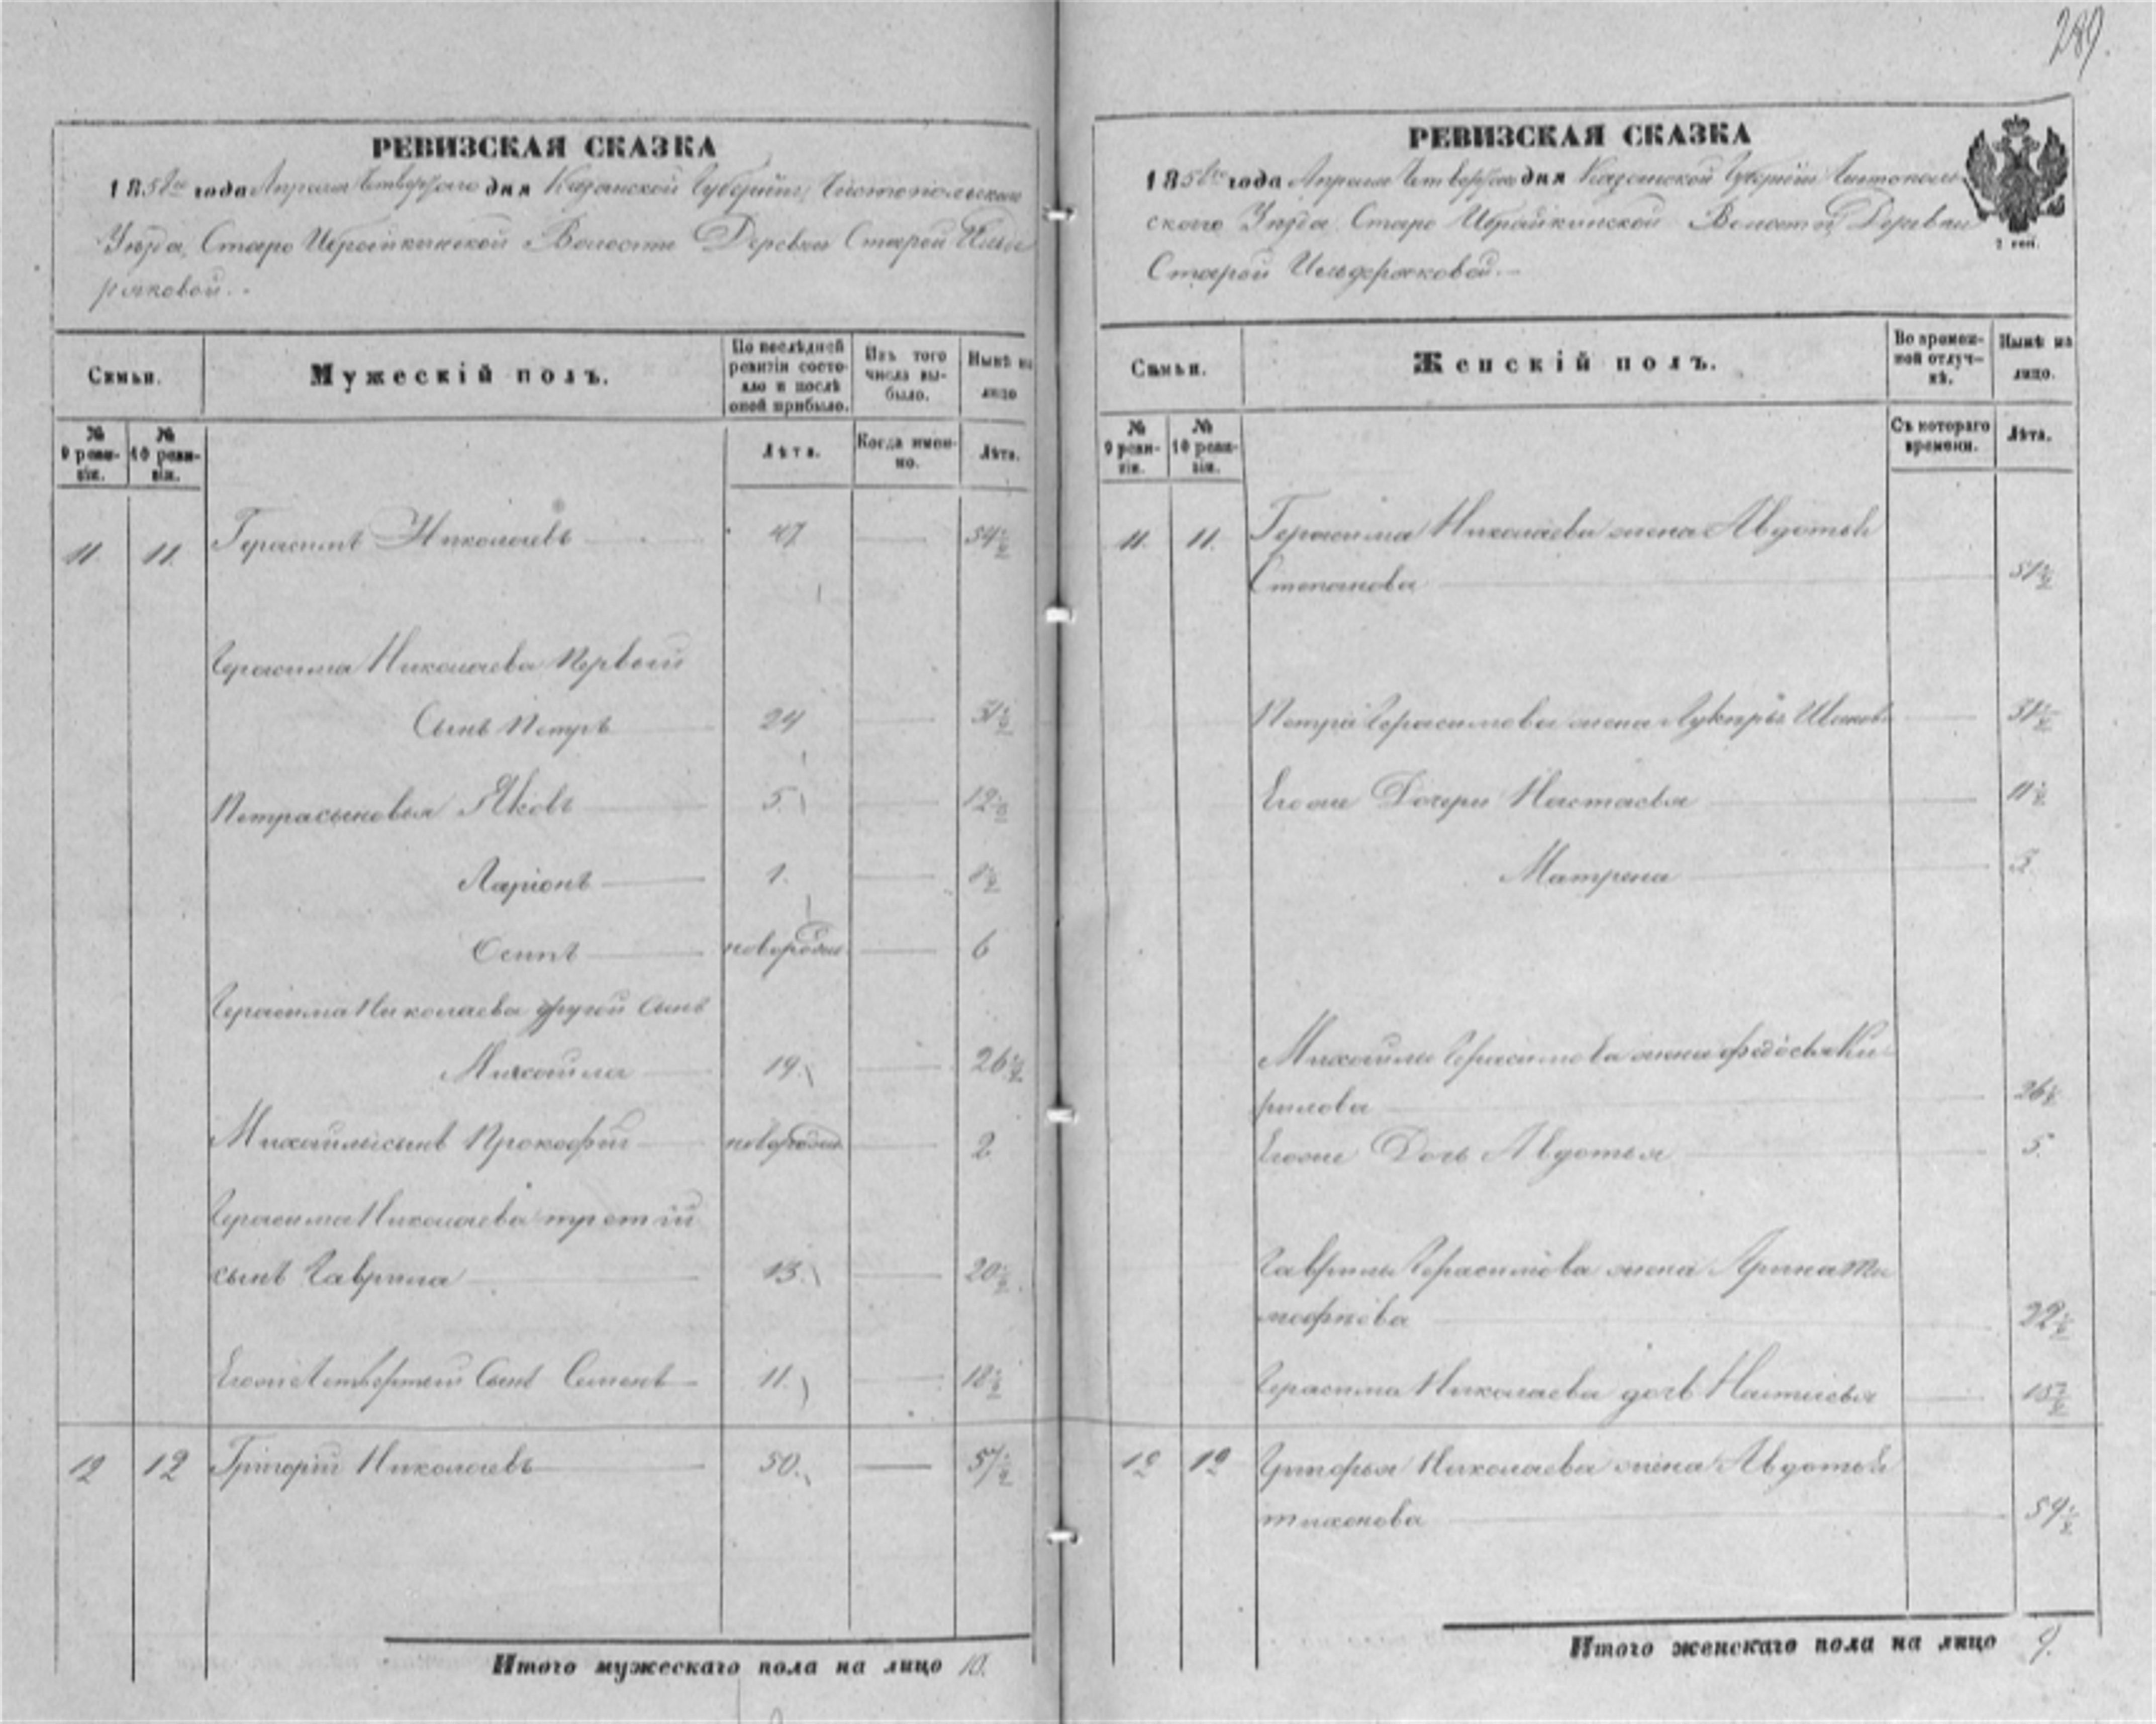 289.
РЕВИЗСКАЯ СКАЗКА
1858го года Апреля Четвертаго дня Казанской Губерніи, Чистопольскаго
Уезда, Старо Ибрайкинской Волости Деревни Старой Ильде
ряковой.
Семьи.
Мужескій полъ.
По послѣдней ревизіи состояло и послѣ оной прибыло.
Изъ того числа выбыло.
Нынѣ на лицо
№ 9 ревизіи.
№ 10 ревизіи.
Лѣта.
Когда именно.
Лѣта.
11 11. Герасимъ Николаевъ 47 54½
Герасима Николаева Первый
Сынъ Петръ 24 31½
Петра сыновья Яковъ 5. 12½
Ларіонъ 1. 8½
Осипъ новорожден 6
Герасима Николаева другой сынъ
Михайла 19. 26½
Михайлы сынъ Прокофій новорожден 2
Герасима Николаева третій
сынъ Гаврила 13. 20½
Егоже Четвертый Сынъ Семенъ 11. 18½
12 12 Григорій Николаевъ 50. 57½
Итого мужескаго пола на лицо 10.
РЕВИЗСКАЯ СКАЗКА
1858го года Апреля Четвертаго дня Казанской Губерніи Чистополь
скаго Уезда Старо Ибрайкинской Волости, Деревни
Старой Ильдеряковой.
2 коп.
Семьи.
Женскій полъ.
Во временной отлучкѣ.
Нынѣ на лицо.
№ 9 ревизіи.
№ 10 ревизіи.
Съ котораго времени.
Лѣта.
11. 11. Герасима Николаева жена Авдотья
Степанова 51½
Петра Герасимова жена Лукерья Иванова 31½
Егоже Дочери Настасья 11½
Матрена 3
Михайлы Герасимова жена Федосья Ки
рилова 26½
Егоже Дочь Авдотья 5.
Гаврилы Герасимова жена Арина Ти
мофеева 22½
Герасима Николаева дочь Настасья 15½
12 12 Григорья Николаева жена Авдотья
тихонова 59½
Итого женскаго пола на лицо 9.